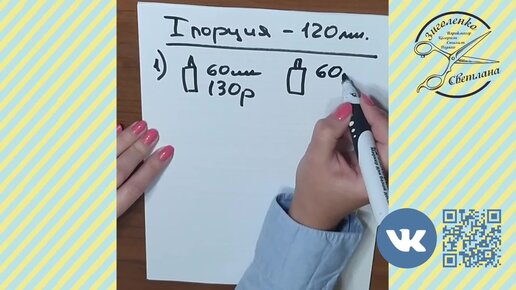 1 порция – 120мл.
1) 60мл 60
130р
Зиголенко
Парикмахер
Колорист
Стилист
Светлана